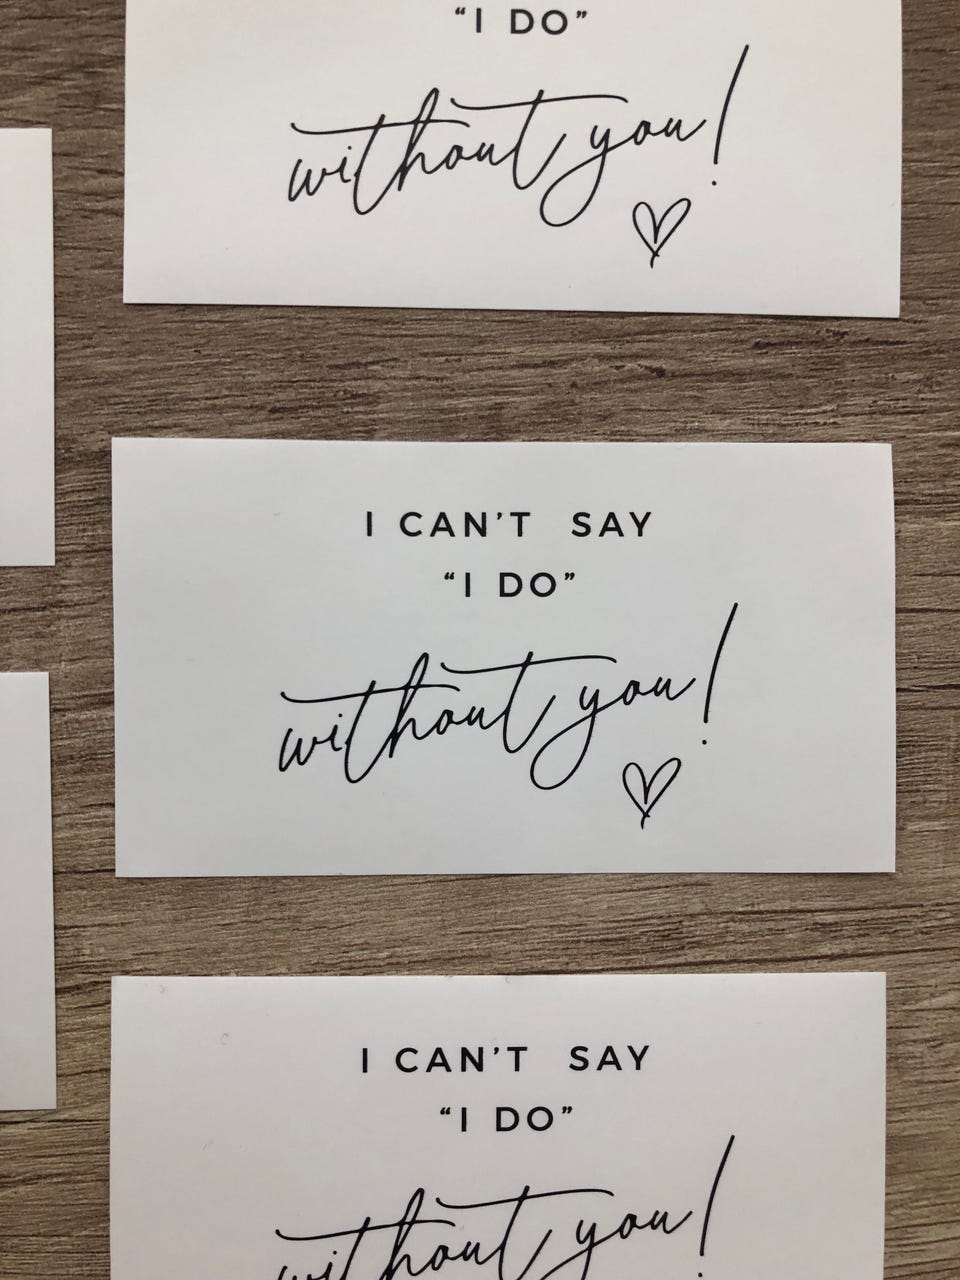 “I DO”
without you!
I CAN’T SAY
“I DO”
without you!
I CAN’T SAY
“I DO”
without you!